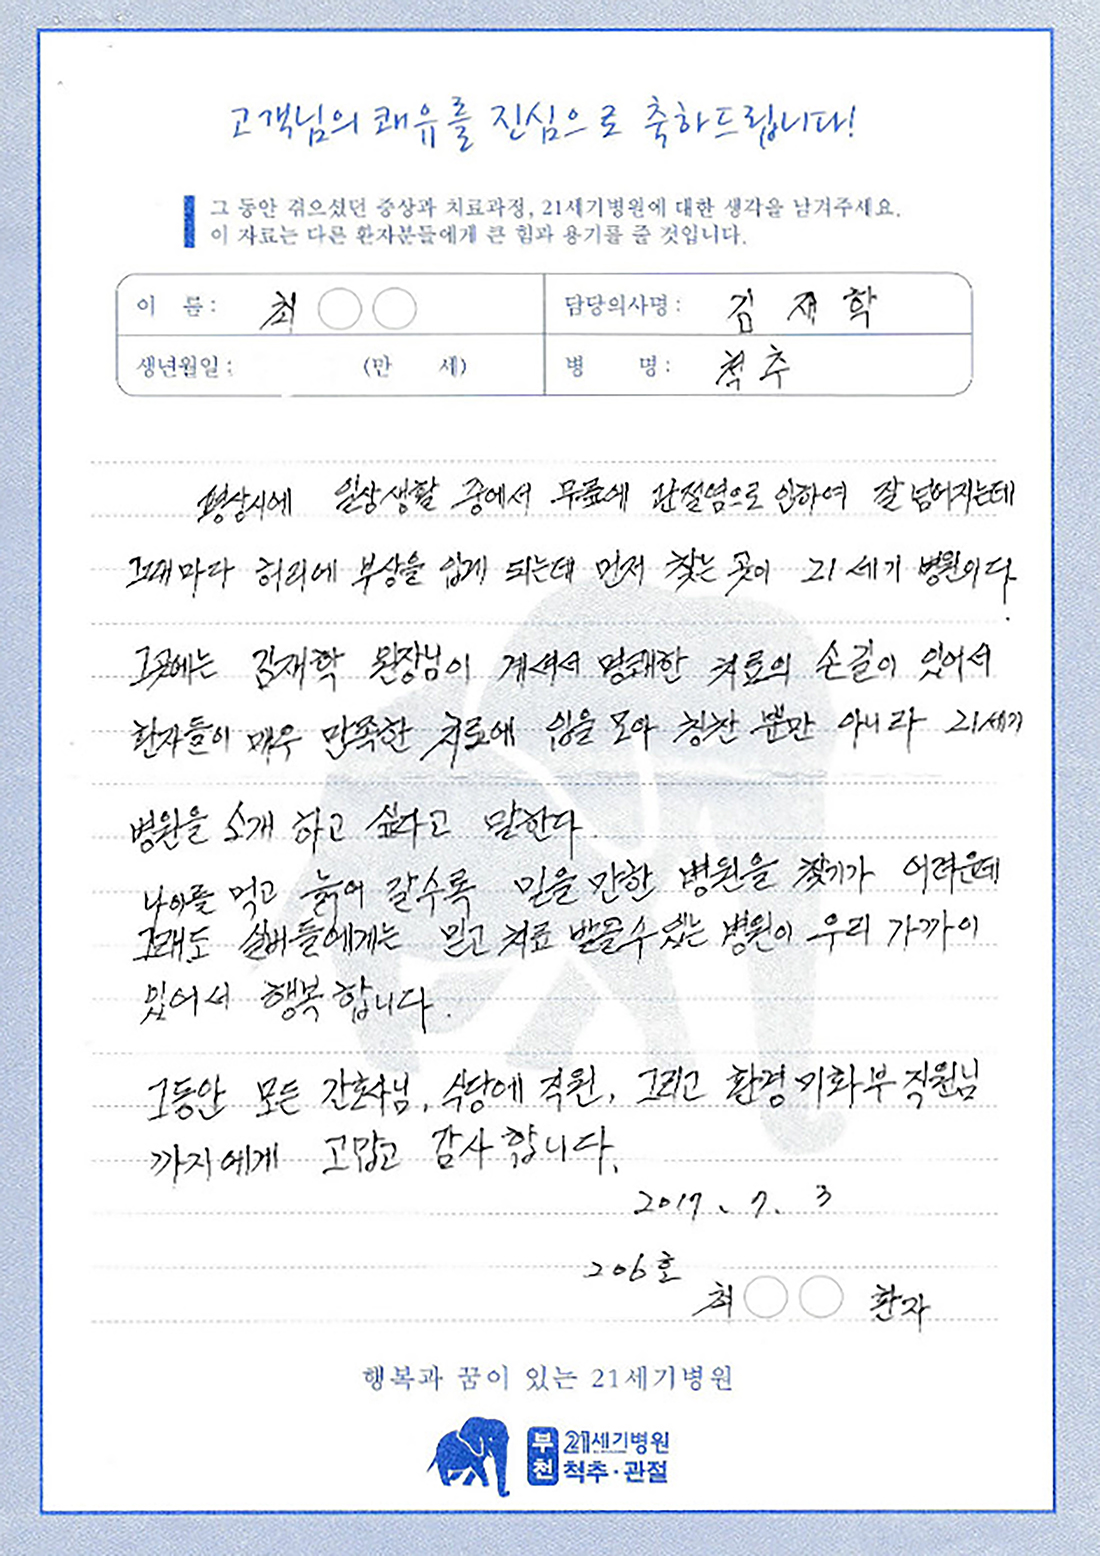 고객님의 쾌유를 진심으로 축하드립니다!
그 동안 겪으셨던 증상과 치료과정, 21세기병원에 대한 생각을 남겨주세요.
이 자료는 다른 환자분들에게 큰 힘과 용기를 줄 것입니다.
이 름 : 최 ○○ 담당의사명 : 김 재 학
생년월일 : (만 세) 병 명 : 척추
평상시에 일상생활 중에서 무릎에 관절염으로 인하여 잘 넘어지는데
그때마다 허리에 부상을 입게 되는데 먼저 찾는 곳이 21세기 병원이다.
그곳에는 김재학 원장님이 계셔서 명쾌한 치료의 손길이 있어서
환자들이 매우 만족한 치료에 입을 모아 칭찬 뿐만 아니라 21세기
병원을 소개 하고 싶다고 말한다.
나이를 먹고 늙어 갈수록 믿을 만한 병원을 찾기가 어려운데
그래도 실버들에게는 믿고 치료 받을수 있는 병원이 우리 가까이
있어서 행복합니다.
그동안 모든 간호사님, 식당에 직원, 그리고 환경미화부 직원님
까지에게 고맙고 감사합니다.
2017. 7. 3
206호
최○○ 환자
행복과 꿈이 있는 21세기병원
부천 21세기병원
척추·관절